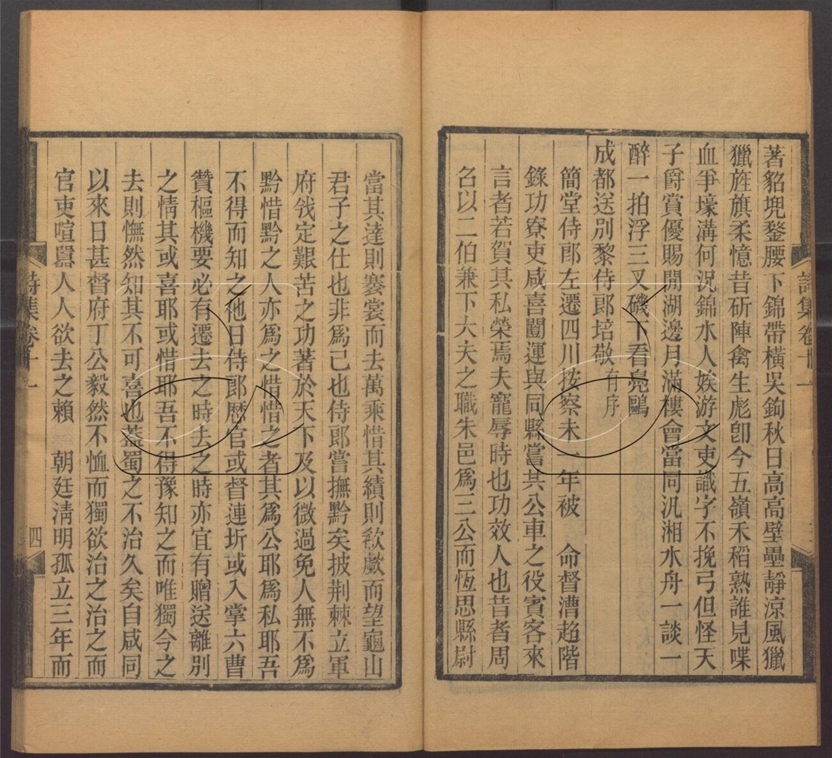 著貂兜鍪腰下錦帶橫吳鉤秋日高高壁壘靜涼風獵
獵旌旗柔憶昔斫陣禽生彪卽今五嶺禾稻熟誰見喋
血爭壕溝何況錦水人娭游文吏識字不挽弓但怪天
子爵賞優賜開湖邊月滿樓會當同汎湘水舟一談一
醉一拍浮三叉磯下看鳧鷗
成都送別黎侍郎培敬有序
簡堂侍郎左遷四川按察未一年被 命督漕趋階
錄功寮吏咸喜闓運與同縣嘗其公車之役賓客來
言者若賀其私榮焉夫寵辱時也功效人也昔者周
名以二伯兼下大夫之職朱邑爲三公而恆思縣尉
詩集卷十一
三
當其達則褰裳而去萬乘惜其績則欷歔而望龜山
君子之仕也非爲己也侍郎嘗撫黔矣披荆棘立軍
府戗定艱苦之功著於天下及以微過免人無不爲
黔惜黔之人亦爲之惜惜之者其爲公耶爲私耶吾
不得而知之他日侍郎歴官或督連圻或入掌六曹
贊樞機要必有遷去之時去之時亦宜有贈送離別
之情其或喜耶或惜耶吾不得豫知之而唯獨今之
去則憮然知其不可喜也蓋蜀之不治久矣自咸同
以來日甚督府丁公毅然不恤而獨欲治之治之而
官吏喧囂人人欲去之賴 朝廷淸明孤立三年而
詩集卷十一
四